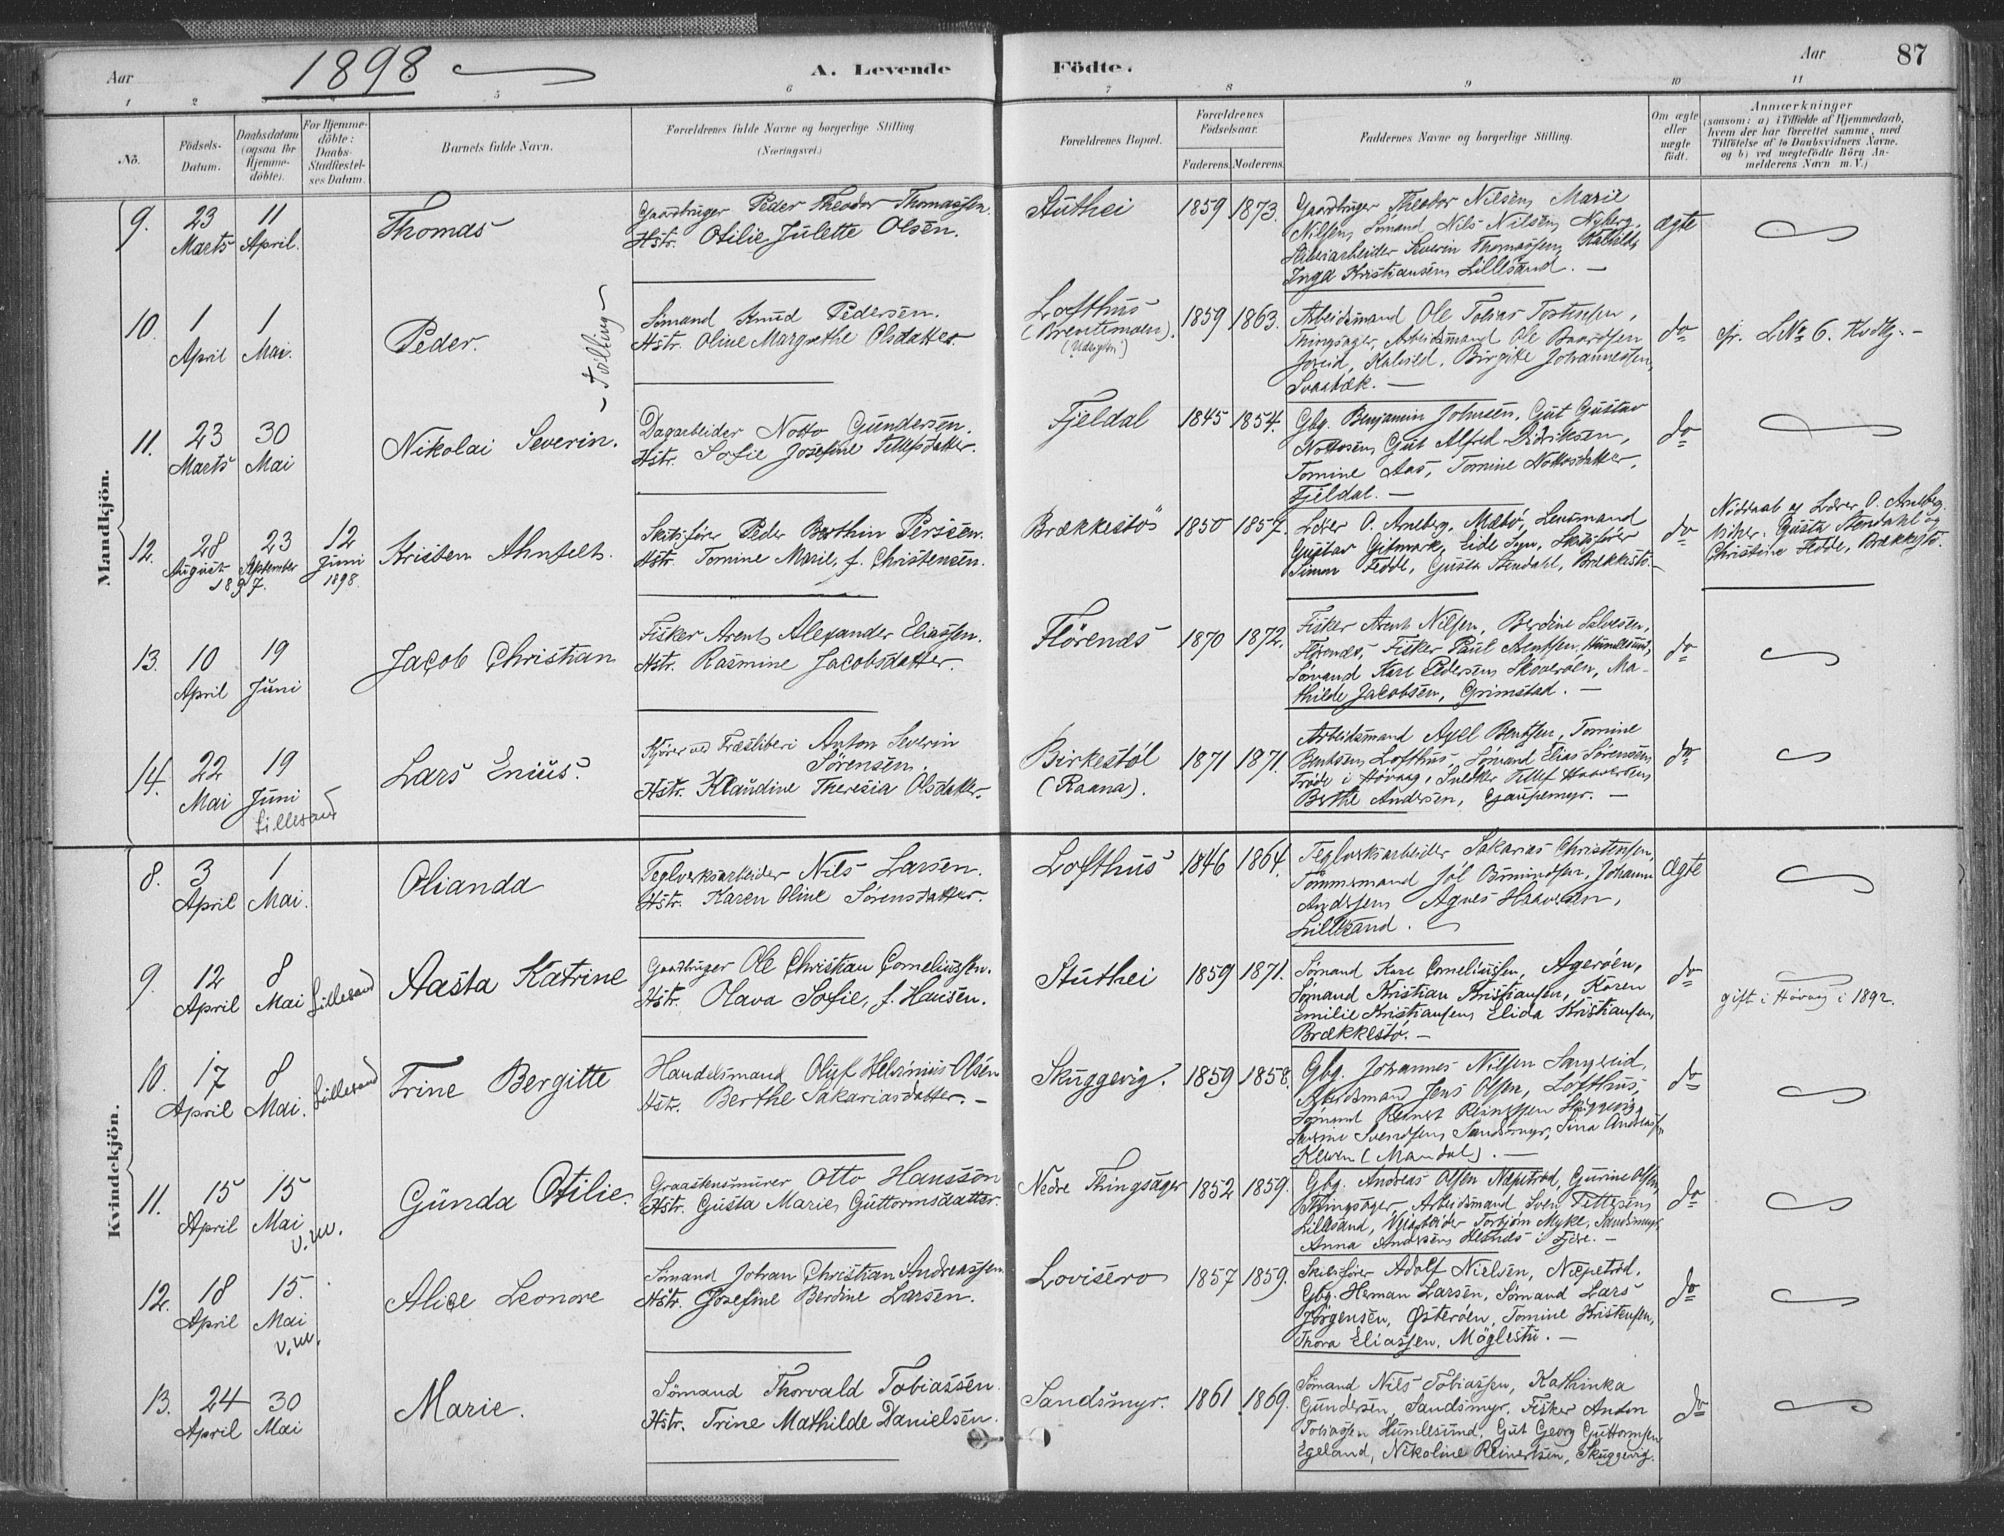 Aar 1898 A. Levende Födte. Aar 87
1 2 3 4 5 6 7 8 9 10 11
No. Födsels-Datum. Daabsdatum (ogsaa for Hjemme-döbte). For Hjemme-döbte: Daabs-Stadfæstel-ses Datum. Barnets fulde Navn. Forældrenes fulde Navne og borgerlige Stilling (Næringsvei.) Forældrenes Bopæl. Forældrenes Födselsaar. Faderens. Moderens. Faddernes Navne og borgerlige Stilling. Om ægte eller uægte födt. Anmærkninger
(saasom: a) i Tilfælde af Hjemmedaab,
hvem der har forrettet samme, med
Tilföielse af to Daabsvidners Navne,
og b) ved uægtefödte Börn An-
melderens Navn m. V.)
Mandkjön.
9. 23 Marts 11 April. Thomas
Gaardbruger Peder Theodor Thomassen.
Hstr. Otilie Julette Olsen.
Stuthei 1859 1873.
Gaardbruger Theodor Nilsen, Marie
Nilsen, Sömand Nils Nilsen, Nyberg,
Severin Thomassen,
Inga Kristiansen Lillesand. —
ægte
10. 1 April 1 Mai. Peder.
— Tvilling —
Sömand Knud Pedersen.
Hstr. Oline Margrethe Olsdatter.
Lofthus
(Brentemoen).
1859 1863.
Arbeidsmand Ole Tobias Tostensen,
Thingsager, Arbeidsmand Ole Baardsen
Joreid, Kalvild, Birgitte Johannessen,
Svarbæk. —
do
11. 23 Marts 30 Mai Nikolai Severin.
Dagarbeider Notto Gundersen.
Hstr. Sofie Josefine Tellefsdatter.
Fjeldal 1845 1854.
Gbg. Benjamin Johnsen, Gut Gustav
Nottosen, Gut Alfred Didriksen,
Tomine Aas, Tomine Nottosdatter,
Fjeldal. —
do
12. 28 August 1897. 23 September 12 Juni 1898 Kristen Ahnfelt
Skibsfører Peder Berthin
Hstr. Tomine Marie, f. Christensen.
Brækkestö 1850 1857.
Lærer O. Arneberg, Mæbø, Lensmand
Gustav Gitmark, Eide Sogn, Skibsfører
Simon Fedde, Gusta Stendahl, Brækkestö. —
do
Nöddaab af Lærer O. Arneberg.
Gusta Stendahl og
Christine Fedde, Brækkestö.
13. 10 April 19 Juni Jacob Christian
Fisker Arent Alexander Eliassen.
Hstr. Rasmine Jacobsdatter.
Flörenæs 1870 1872.
Fisker Arent Nilsen, Berdine Salvesen,
Flörenæs, Fisker Paul Arntsen, Humlesund,
Sömand Karl Pedersen Skoverøen, Ma-
thilde Jacobsen, Grimstad. —
do
14. 22 Mai 19 Juni Lillesand Lars Enius.
Kjører ved Træsliberi Anton Severin
Sörensen,
Hstr. Klaudine Theresia Olsdatter.
Birkestöl
(Raana).
1871 1871.
Arbeidsmand Axel Bentsen, Tomine
Bentsen Lofthus, Sömand Elias Sörensen,
i Høvaag, Tellef Haaversen
Berthe Andersen, Gaupemyr. —
do
Kvindekjön.
8. 3 April 1 Mai. Olianda
Teglverksarbeider Nils Larsen.
Hstr. Karen Oline Sörensdatter.
Lofthus 1846 1864.
Teglverksarbeider Sakarias Christensen,
Tömmermand Jöl Johanne
Andersen Agnes Haaversen,
Lillesand.
ægte
9. 12 April 8 Mai Lillesand Aasta Katrine
Gaardbruger Ole Christian Corneliussen.
Hstr. Olava Sofie, f. Hansen.
Stuthei 1859 1871.
Sömand Karl Corneliussen, Ageröen,
Sömand Kristian Kristiansen, Karen
Emilie Kristiansen, Elida Kristiansen,
Brækkestö. —
do
gift i Høvag i 1892.
10. 17 April 8 Mai. Lillesand Trine Bergitte
Handelsmand Oluf Helenius Olsen
Hstr. Berthe Sakariasdatter. —
Skuggevig. 1859 1858.
Gbg. Johannes Nilsen Sangereid,
Arbeidsmand Jens Olsen, Lofthus,
Sömand Reinert Reinertsen Skuggevig,
Svendsen, Sandsmyr, Sina Andreassen
Kleven (Mandal). —
do
11. 15 April 15 Mai v.m. Gunda Otilie.
Graastensmurer Otto Hansson
Hstr. Gusta Marie, Guttormsdatter.
Nedre Thingsager 1852 1859.
Gbg. Andreas Olsen Næpetrød, Gurine Olsen,
Thingsager, Arbeidsmand Sven Tellefsen,
Lillesand, Veiarbeider Torbjörn Myke, Sandsmyr,
Anna Andersen i Fjære. —
do
12. 18 April 15. Mai v.m. Alice Leonore
Sömand Johan Christian Andreassen
Hstr. Josefine Berdine Larsen.
Lovisero 1857 1859.
Skibsfører Adolf Nielsen, Næpetrød,
Gbg. Herman Larsen, Sömand Lars
Jörgensen, Österöen, Tomine Kristensen,
Thora Eliassen, Möglestu. —
do
13. 24 April 30 Mai Marie.
Sömand Thorvald Tobiassen.
Hstr. Trine Mathilde Danielsen.
Sandsmyr. 1861 1869.
Sömand Nils Tobiassen, Kathinka
Gundersen, Sandsmyr, Fisker Anton
Tobiassen Humlesund, Gut Georg Guttormsen
Egeland, Nikoline Reinertsen, Skuggevig.
do